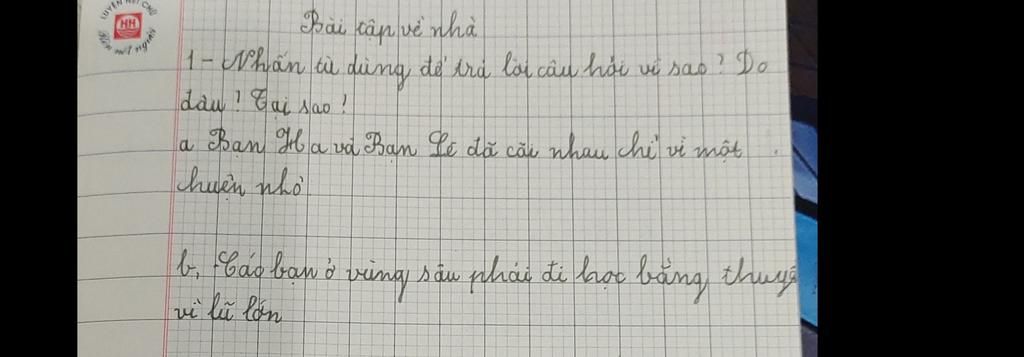 LUYỆN NÉT CHỮ
HH
RÈN NẾT NGƯỜI
Bài tập về nhà
1 - Nhấn từ dùng để trả lời câu hỏi vì sao? Do
đâu? Tại sao?
a Bạn Ha và Bạn Lê đã cãi nhau chỉ vì một
chuện nhỏ
b, Các bạn ở vùng sâu phải đi học bằng thuyề
vì lũ lớn